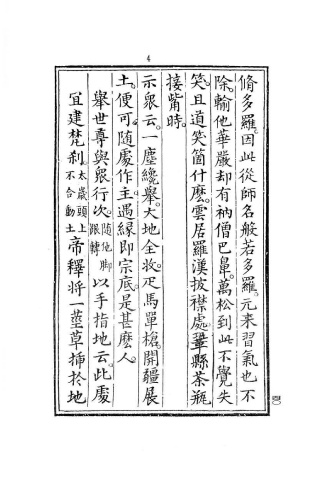 4
脩多羅因此從師名般若多羅元來習氣也不
除輸他華嚴却有衲僧巴鼻萬松到此不覺失
笑且道笑箇什麼雲居羅漢披襟處鞏縣茶瓶
接觜時
示眾云一塵纔舉大地全收疋馬單槍開疆展
土便可隨處作主遇緣即宗底是甚麼人
舉世尊與眾行次隨他脚跟轉以手指地云此處
宜建梵剎太歲頭上不合動土帝釋將一莖草插於地